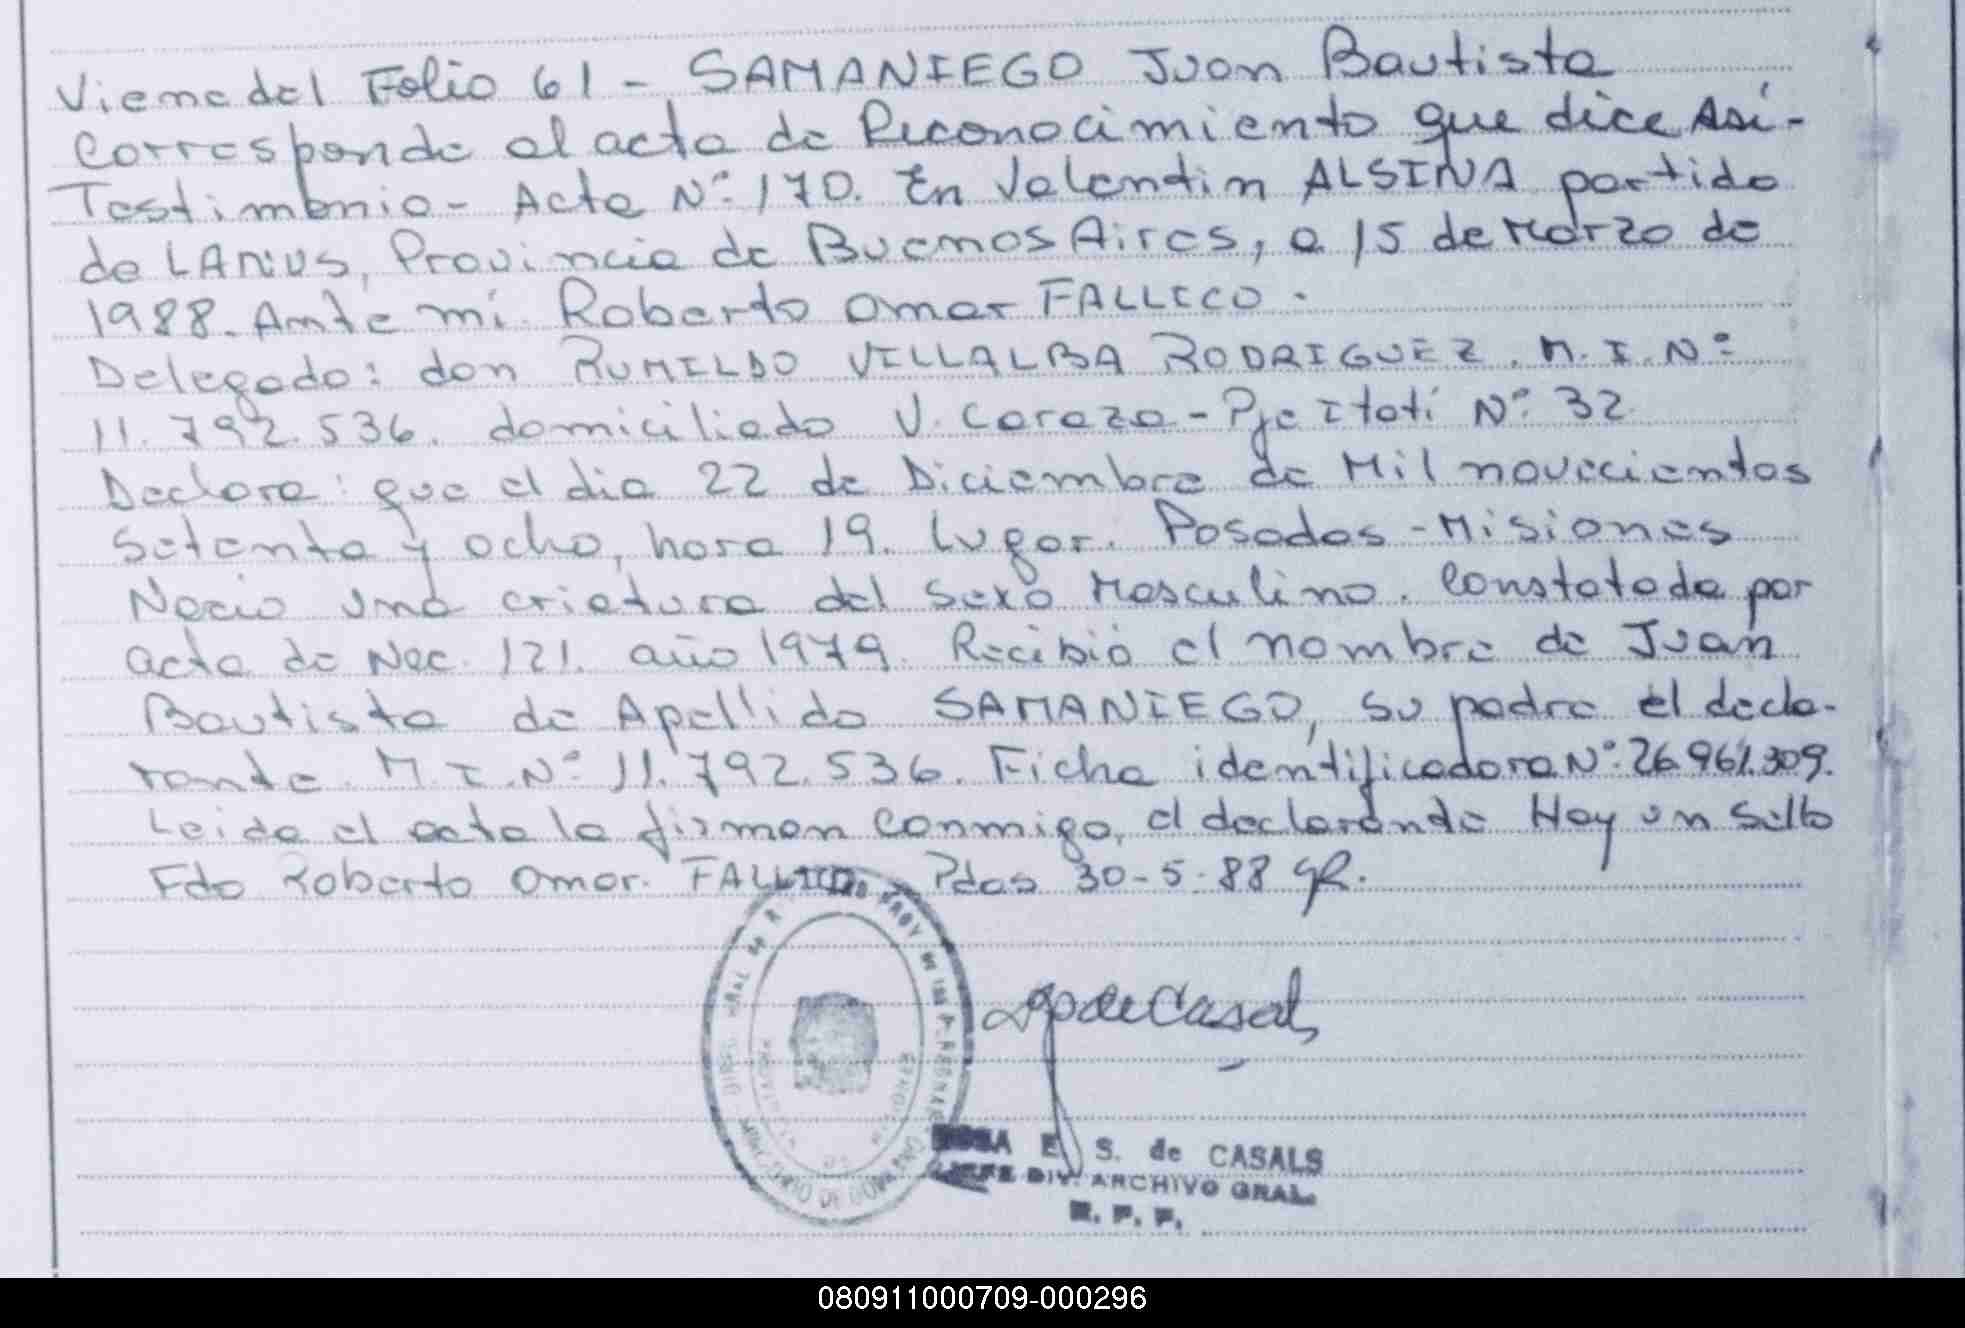 Viene del Folio 61 - SAMANIEGO Juan Bautista
Corresponde al acta de Reconocimiento que dice Así-
Testimonio - Acta Nº 170. En Valentin ALSINA partido
de LANUS, Provincia de Buenos Aires, a 15 de Marzo de
1988. Ante mi Roberto Omar FALLICO.
Delegado: don RUMILDO VILLALBA RODRIGUEZ. M.I.Nº
11.792.536. domiciliado V. Caraza - Pje Itatí Nº 32
Declara: que el dia 22 de Diciembre de Mil novecientos
setenta y ocho, hora 19. lugar. Posadas - Misiones
Nacio una criatura del sexo Masculino. Constatada por
acta de Nac. 121. año 1979. Recibió el nombre de Juan
Bautista de Apellido SAMANIEGO, su padre el decla-
rante. M.I.Nº 11.792.536. Ficha identificadora Nº 26.961.309.
Leida el acta la firman conmigo, el declarante Hay un Sello
Fdo Roberto Omar. FALLICO. Pdas 30-5-88
de Casals
E. S. de CASALS
JEFE DIV. ARCHIVO GRAL.
R. P. P.
MINISTERIO DE GOBIERNO
080911000709-000296